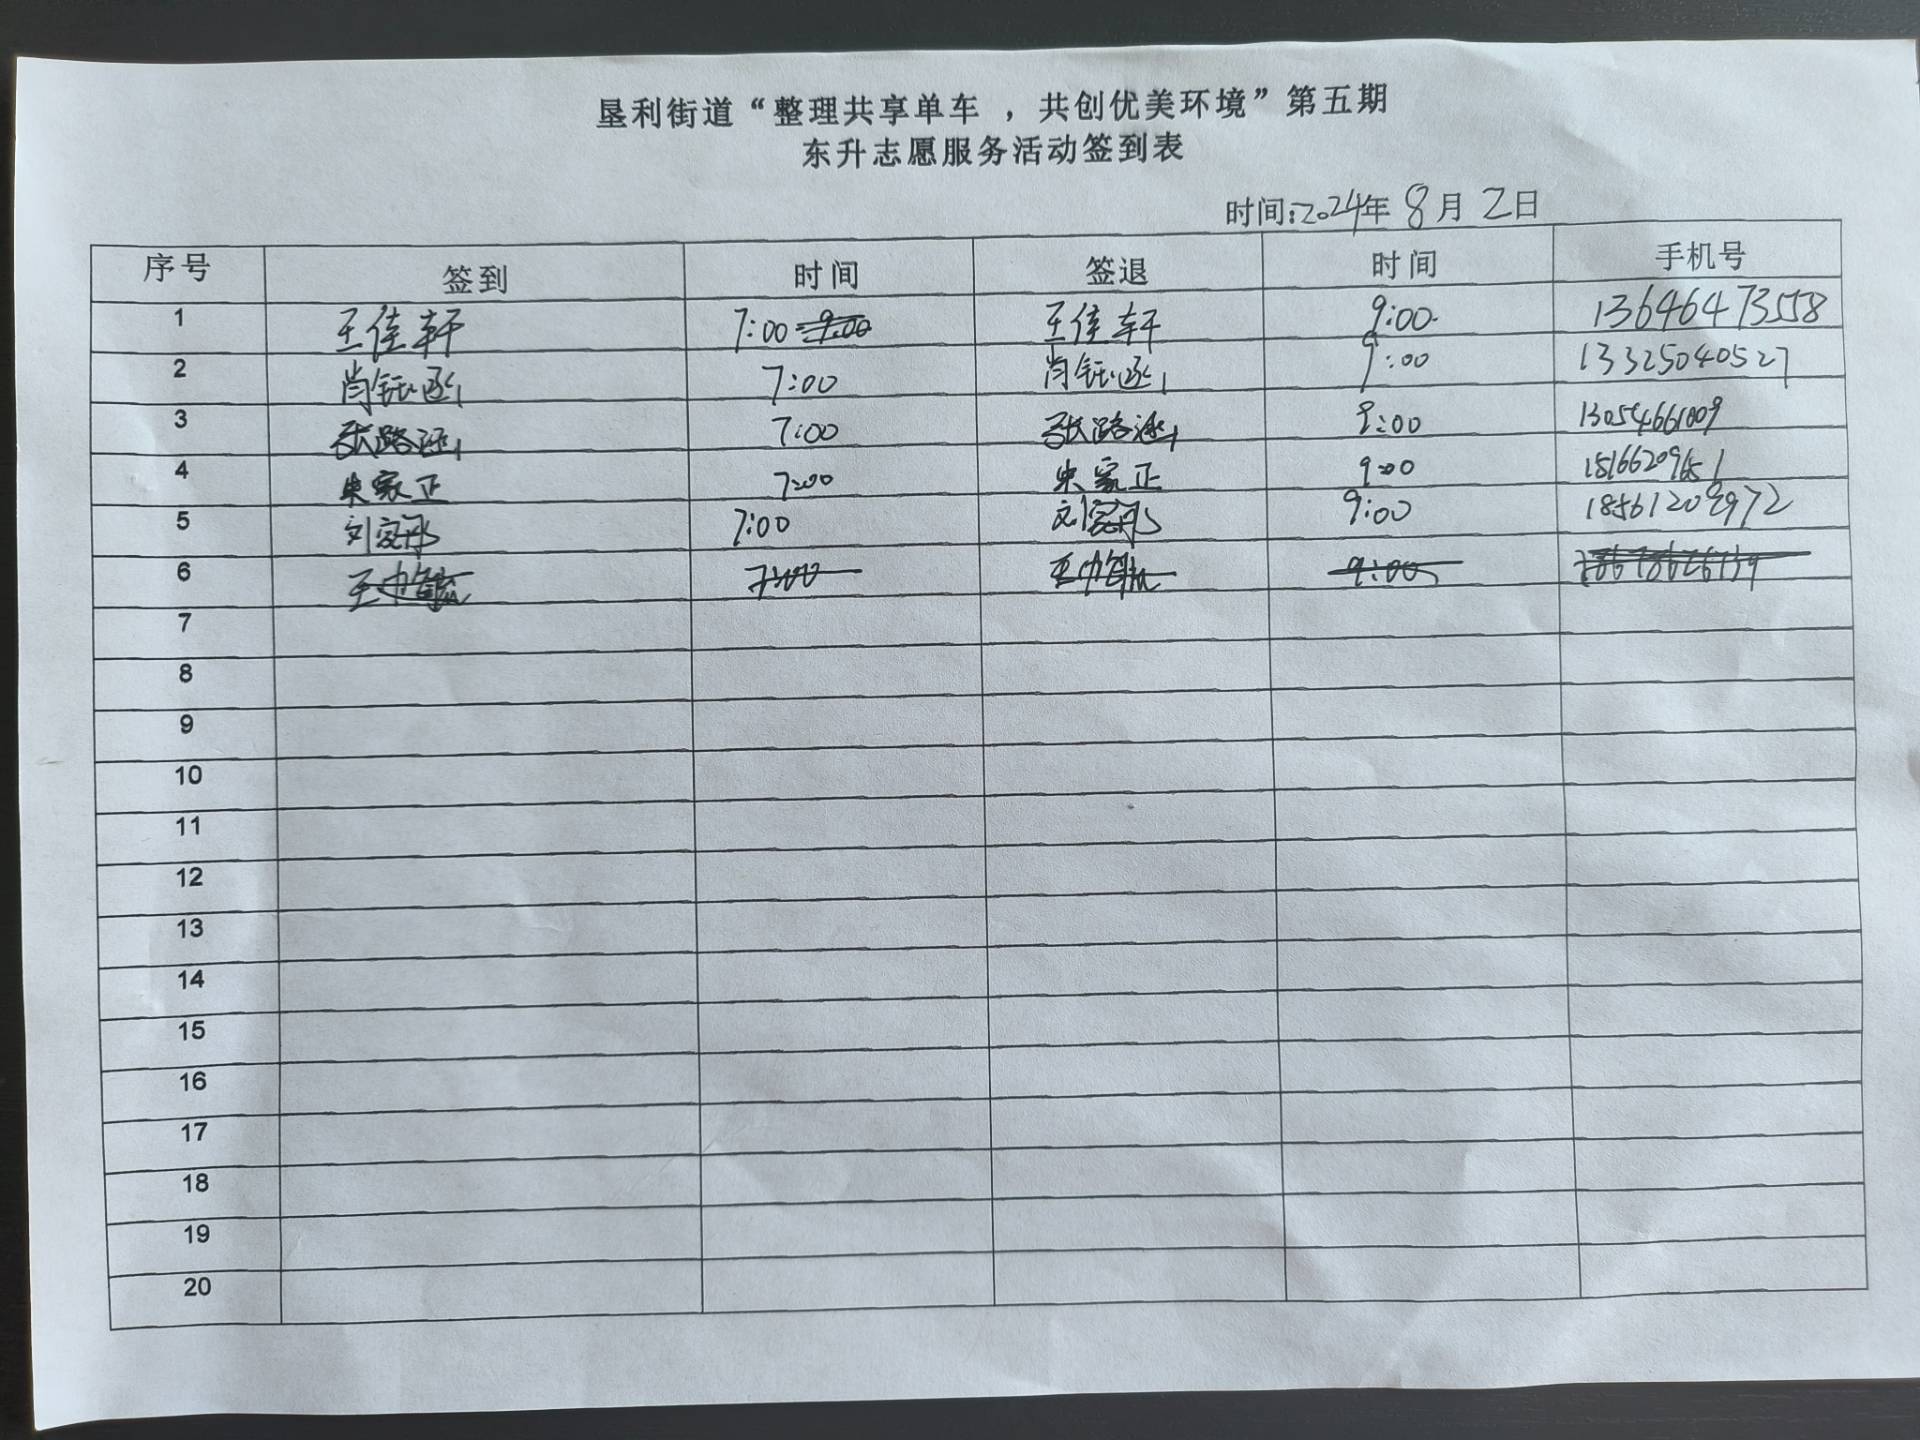 垦利街道“整理共享单车 ，共创优美环境”第五期
东升志愿服务活动签到表
时间:2024年 8月 2日
序号 签到 时间 签退 时间 手机号
1 王佳轩 7:00 王佳轩 9:00 13646473558
2 肖钰涵 7:00 肖钰涵 9:00 13325040527
3 张路涵 7:00 张路涵 9:00 13054661009
4 朱家正 7:00 朱家正 9:00
5 7:00 9:00 18561209972
6 7:00 9:00
7
8
9
10
11
12
13
14
15
16
17
18
19
20